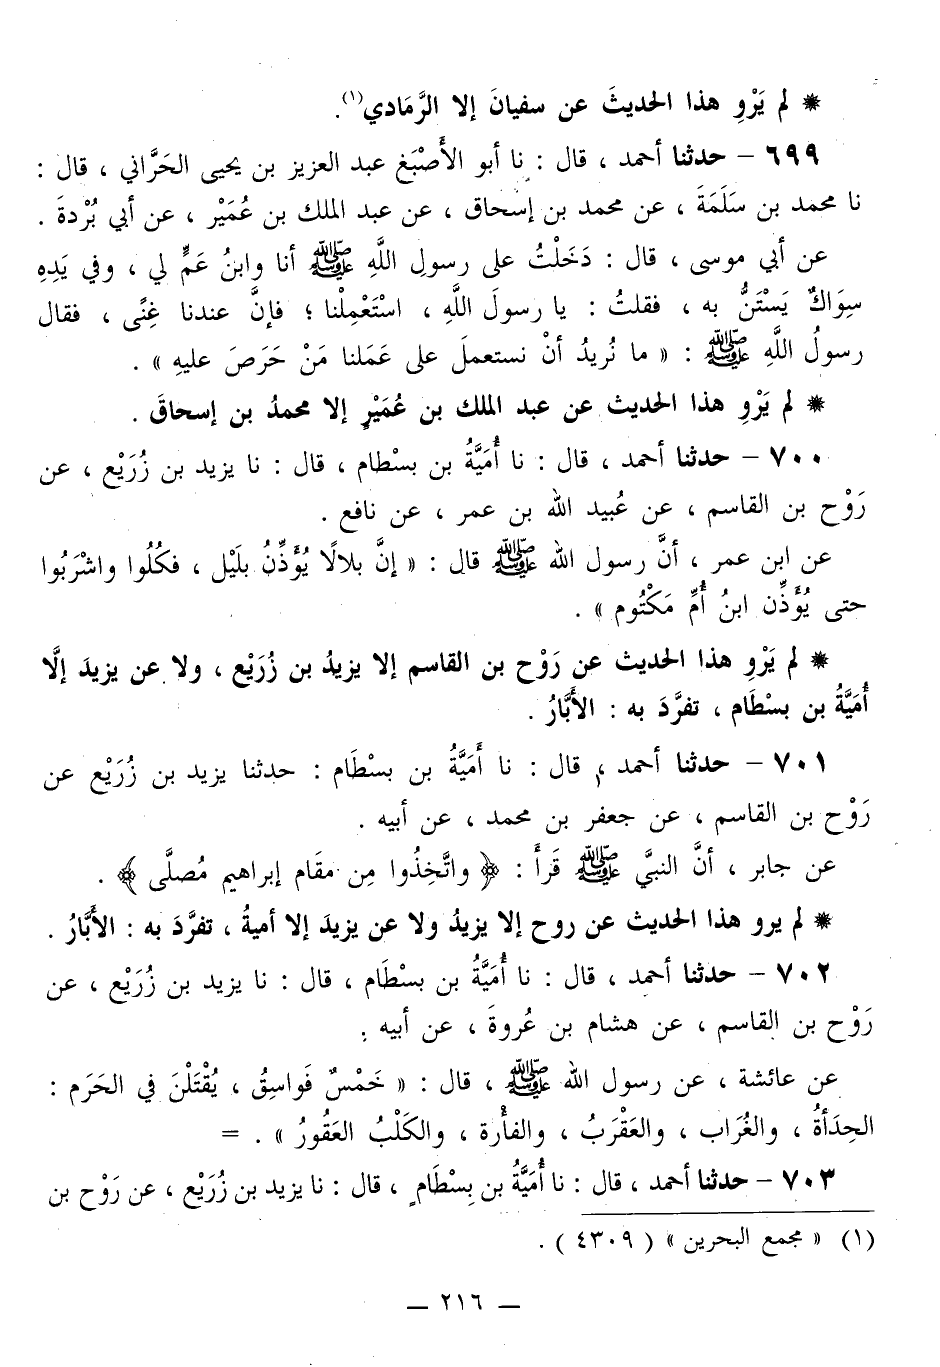 * لم يَرْوِ هذا الحديثَ عن سفيانَ إلا الرَّمَادي(١).
٦٩٩ – حدثنا أحمد ، قال : نا أبو الأَصْبَغ عبد العزيز بن يحيى الحَرَّاني ، قال :
نا محمد بن سَلَمَةَ ، عن محمد بن إسحاق ، عن عبد الملك بن عُمَيْر ، عن أبي بُرْدةَ .
عن أبي موسى ، قال : دَخَلْتُ على رسولِ اللَّهِ ﷺ أنا وابنُ عَمٍّ لي ، وفي يَدِهِ
سِوَاكٌ يَسْتَنُّ به ، فقلتُ : يا رسولَ اللَّهِ ، اسْتَعْمِلْنا ؛ فإنَّ عندنا غِنًى ، فقال
رسولُ اللَّهِ ﷺ : « ما نُريدُ أنْ نستعملَ على عَمَلنا مَنْ حَرَصَ عليهِ » .
* لم يَرْوِ هذا الحديث عن عبد الملك بن عُمَيْرٍ إلا محمدُ بن إسحاقَ .
٧٠٠ – حدثنا أحمد ، قال : نا أُمَيَّةُ بن بسْطام ، قال : نا يزيد بن زُرَيْع ، عن
رَوْح بن القاسم ، عن عُبيد الله بن عمر ، عن نافع .
عن ابن عمر ، أنَّ رسول الله ﷺ قال : « إنَّ بلالًا يُؤَذِّنُ بلَيْل ، فكُلُوا واشْرَبُوا
حتى يُؤَذِّن ابنُ أُمِّ مَكْتُوم » .
* لم يَرْوِ هذا الحديث عن رَوْح بن القاسم إلا يزيدُ بن زُرَيْع ، ولا عن يزيدَ إلَّا
أُمَيَّةُ بن بسْطام ، تفرَّدَ به : الأبَّارُ .
٧٠١ – حدثنا أحمد ، قال : نا أُمَيَّةُ بن بسْطَام : حدثنا يزيد بن زُرَيْع عن
رَوْح بن القاسم ، عن جعفر بن محمد ، عن أبيه .
عن جابر ، أنَّ النبيَّ ﷺ قَرأَ : ﴿ واتَّخِذُوا مِن مقَام إبراهيم مُصلَّى ﴾ .
* لم يرو هذا الحديث عن روح إلا يزيدُ ولا عن يزيدَ إلا أميةُ ، تفرَّدَ به : الأبَّارُ .
٧٠٢ – حدثنا أحمد ، قال : نا أُمَيَّةُ بن بسْطَام ، قال : نا يزيد بن زُرَيْع ، عن
رَوْح بن القاسم ، عن هشام بن عُروةَ ، عن أبيه .
عن عائشة ، عن رسول الله ﷺ ، قال : « خَمْسٌ فَواسِقُ ، يُقْتَلْنَ في الحَرَم :
الحِدَأةُ ، والغُرَاب ، والعَقْرَبُ ، والفأْرة ، والكَلْبُ العَقُورُ » . =
٧٠٣ – حدثنا أحمد ، قال : نا أُمَيَّةُ بن بِسْطَامٍ ، قال : نا يزيد بن زُرَيْع ، عن رَوْح بن
(١) « مجمع البحرين » ( ٤٣٠٩ ) .
– ٢١٦ –